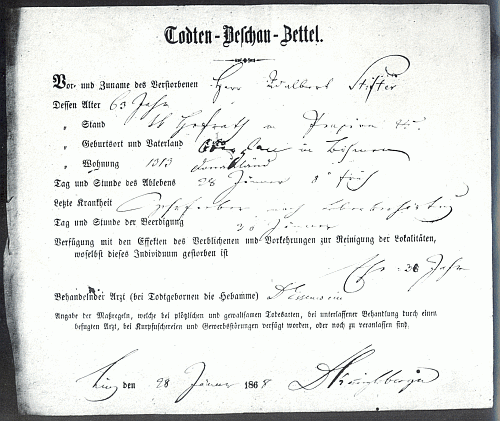 Todten-Beschau-Zettel.
Vor- und Zuname des Verstorbenen Herr Adalbert Stifter
Dessen Alter 63 Jahr
" Stand kk Hofrath in Pension
" Geburtsort und Vaterland in Böhmen
" Wohnung 1313 Donauländ
Tag und Stunde des Ablebens 28 Jänner 8 früh
Letzte Krankheit
Tag und Stunde der Beerdigung 30 Jänner
Verfügung mit den Effekten des Verblichenen und Vorkehrung zur Reinigung der Lokalitäten,
woselbst dieses Individuum gestorben ist
Behandelnder Arzt (bei Todtgebornen die Hebamme)
Angabe der Maßregeln, welche bei plözlichen und gewaltsamen Todesarten, bei unterlassener Behandlung durch einen
befugten Arzt, bei Kurpfuschereien und Gewerbsstörungen verfügt worden, oder noch zu veranlassen sind.
Linz den 28 Jänner 1868